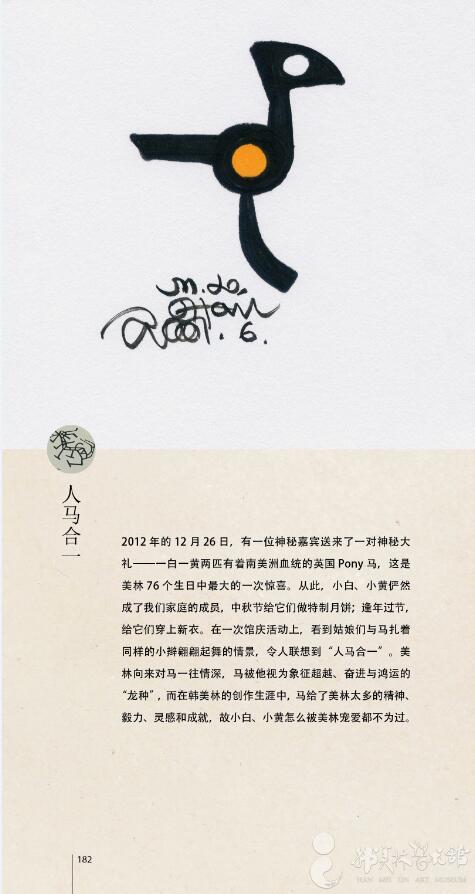 m.lo.
Han
2001.6.
人马合一
2012 年的 12 月 26 日，有一位神秘嘉宾送来了一对神秘大
礼——一白一黄两匹有着南美洲血统的英国 Pony 马，这是
美林 76 个生日中最大的一次惊喜。从此，小白、小黄俨然
成了我们家庭的成员，中秋节给它们做特制月饼；逢年过节，
给它们穿上新衣。在一次馆庆活动上，看到姑娘们与马扎着
同样的小辫翩翩起舞的情景，令人联想到“人马合一”。美
林向来对马一往情深，马被他视为象征超越、奋进与鸿运的
“龙种”，而在韩美林的创作生涯中，马给了美林太多的精神、
毅力、灵感和成就，故小白、小黄怎么被美林宠爱都不为过。
182
韩美林艺术馆
HAN MEI LIN ART MUSEUM